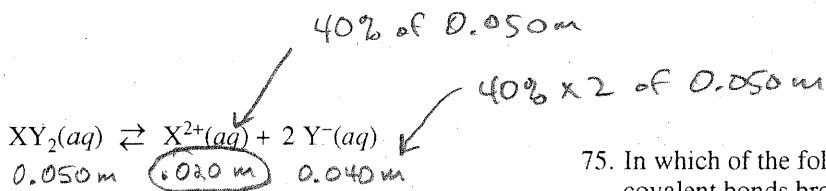 40% of 0.050m
40% x 2 of 0.050m
XY₂(aq) ⇄ X²⁺(aq) + 2 Y⁻(aq)
0.050m .020 m 0.040m
75. In which of the fol
covalent bonds bro